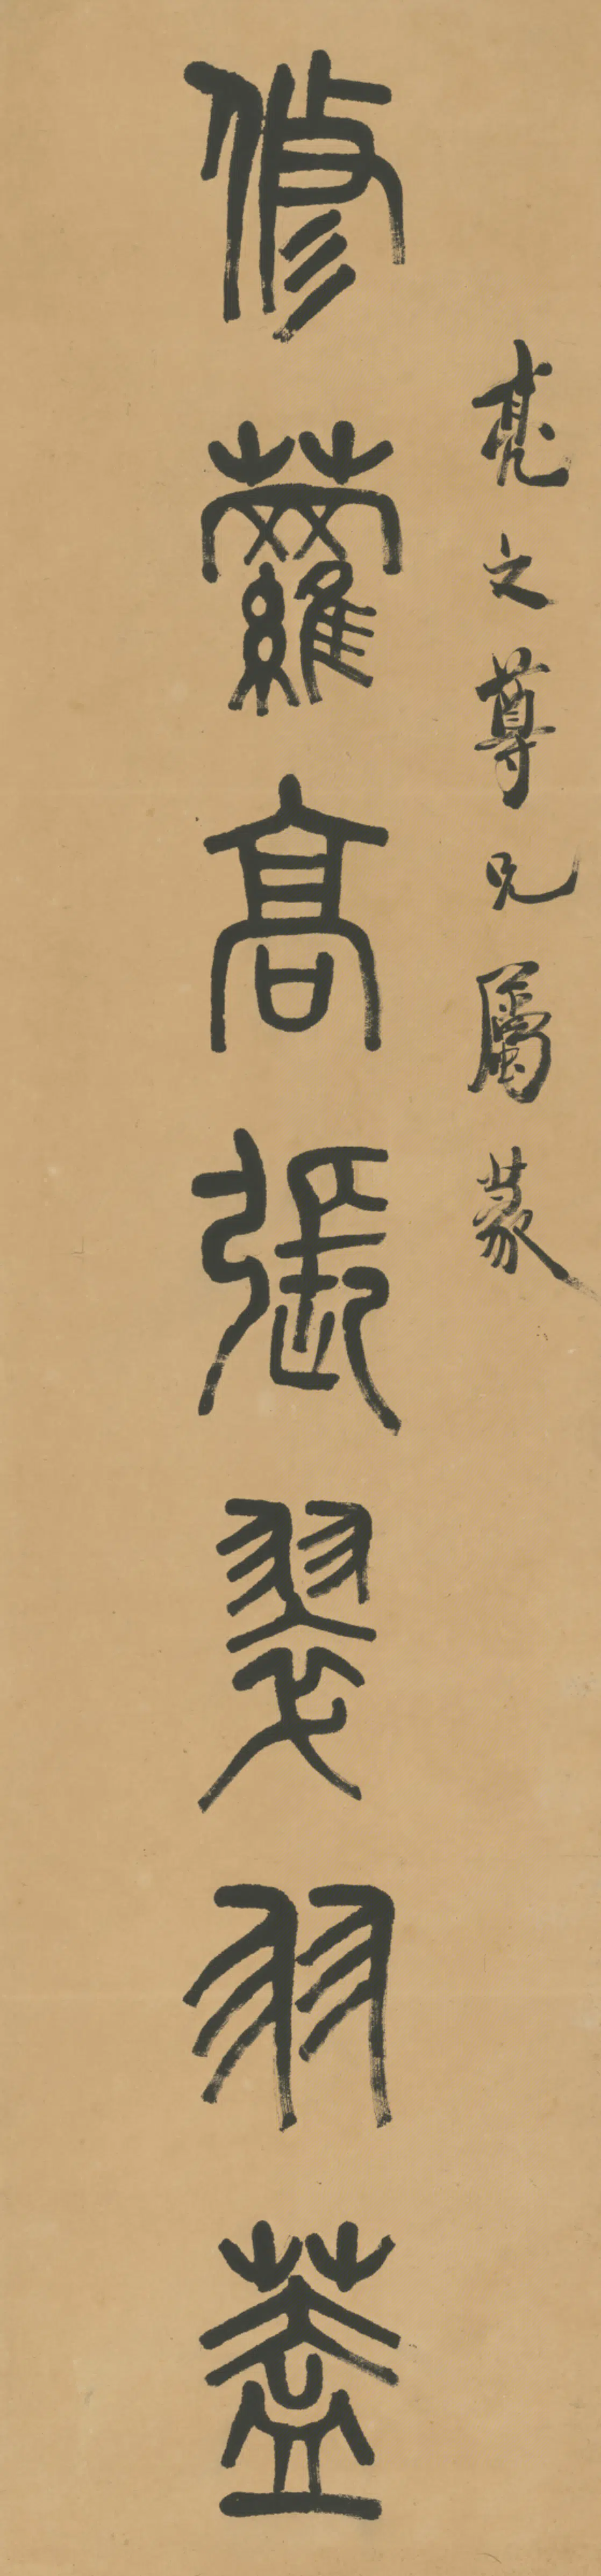 亮之尊兄屬篆
修蘿高張翠羽蓋